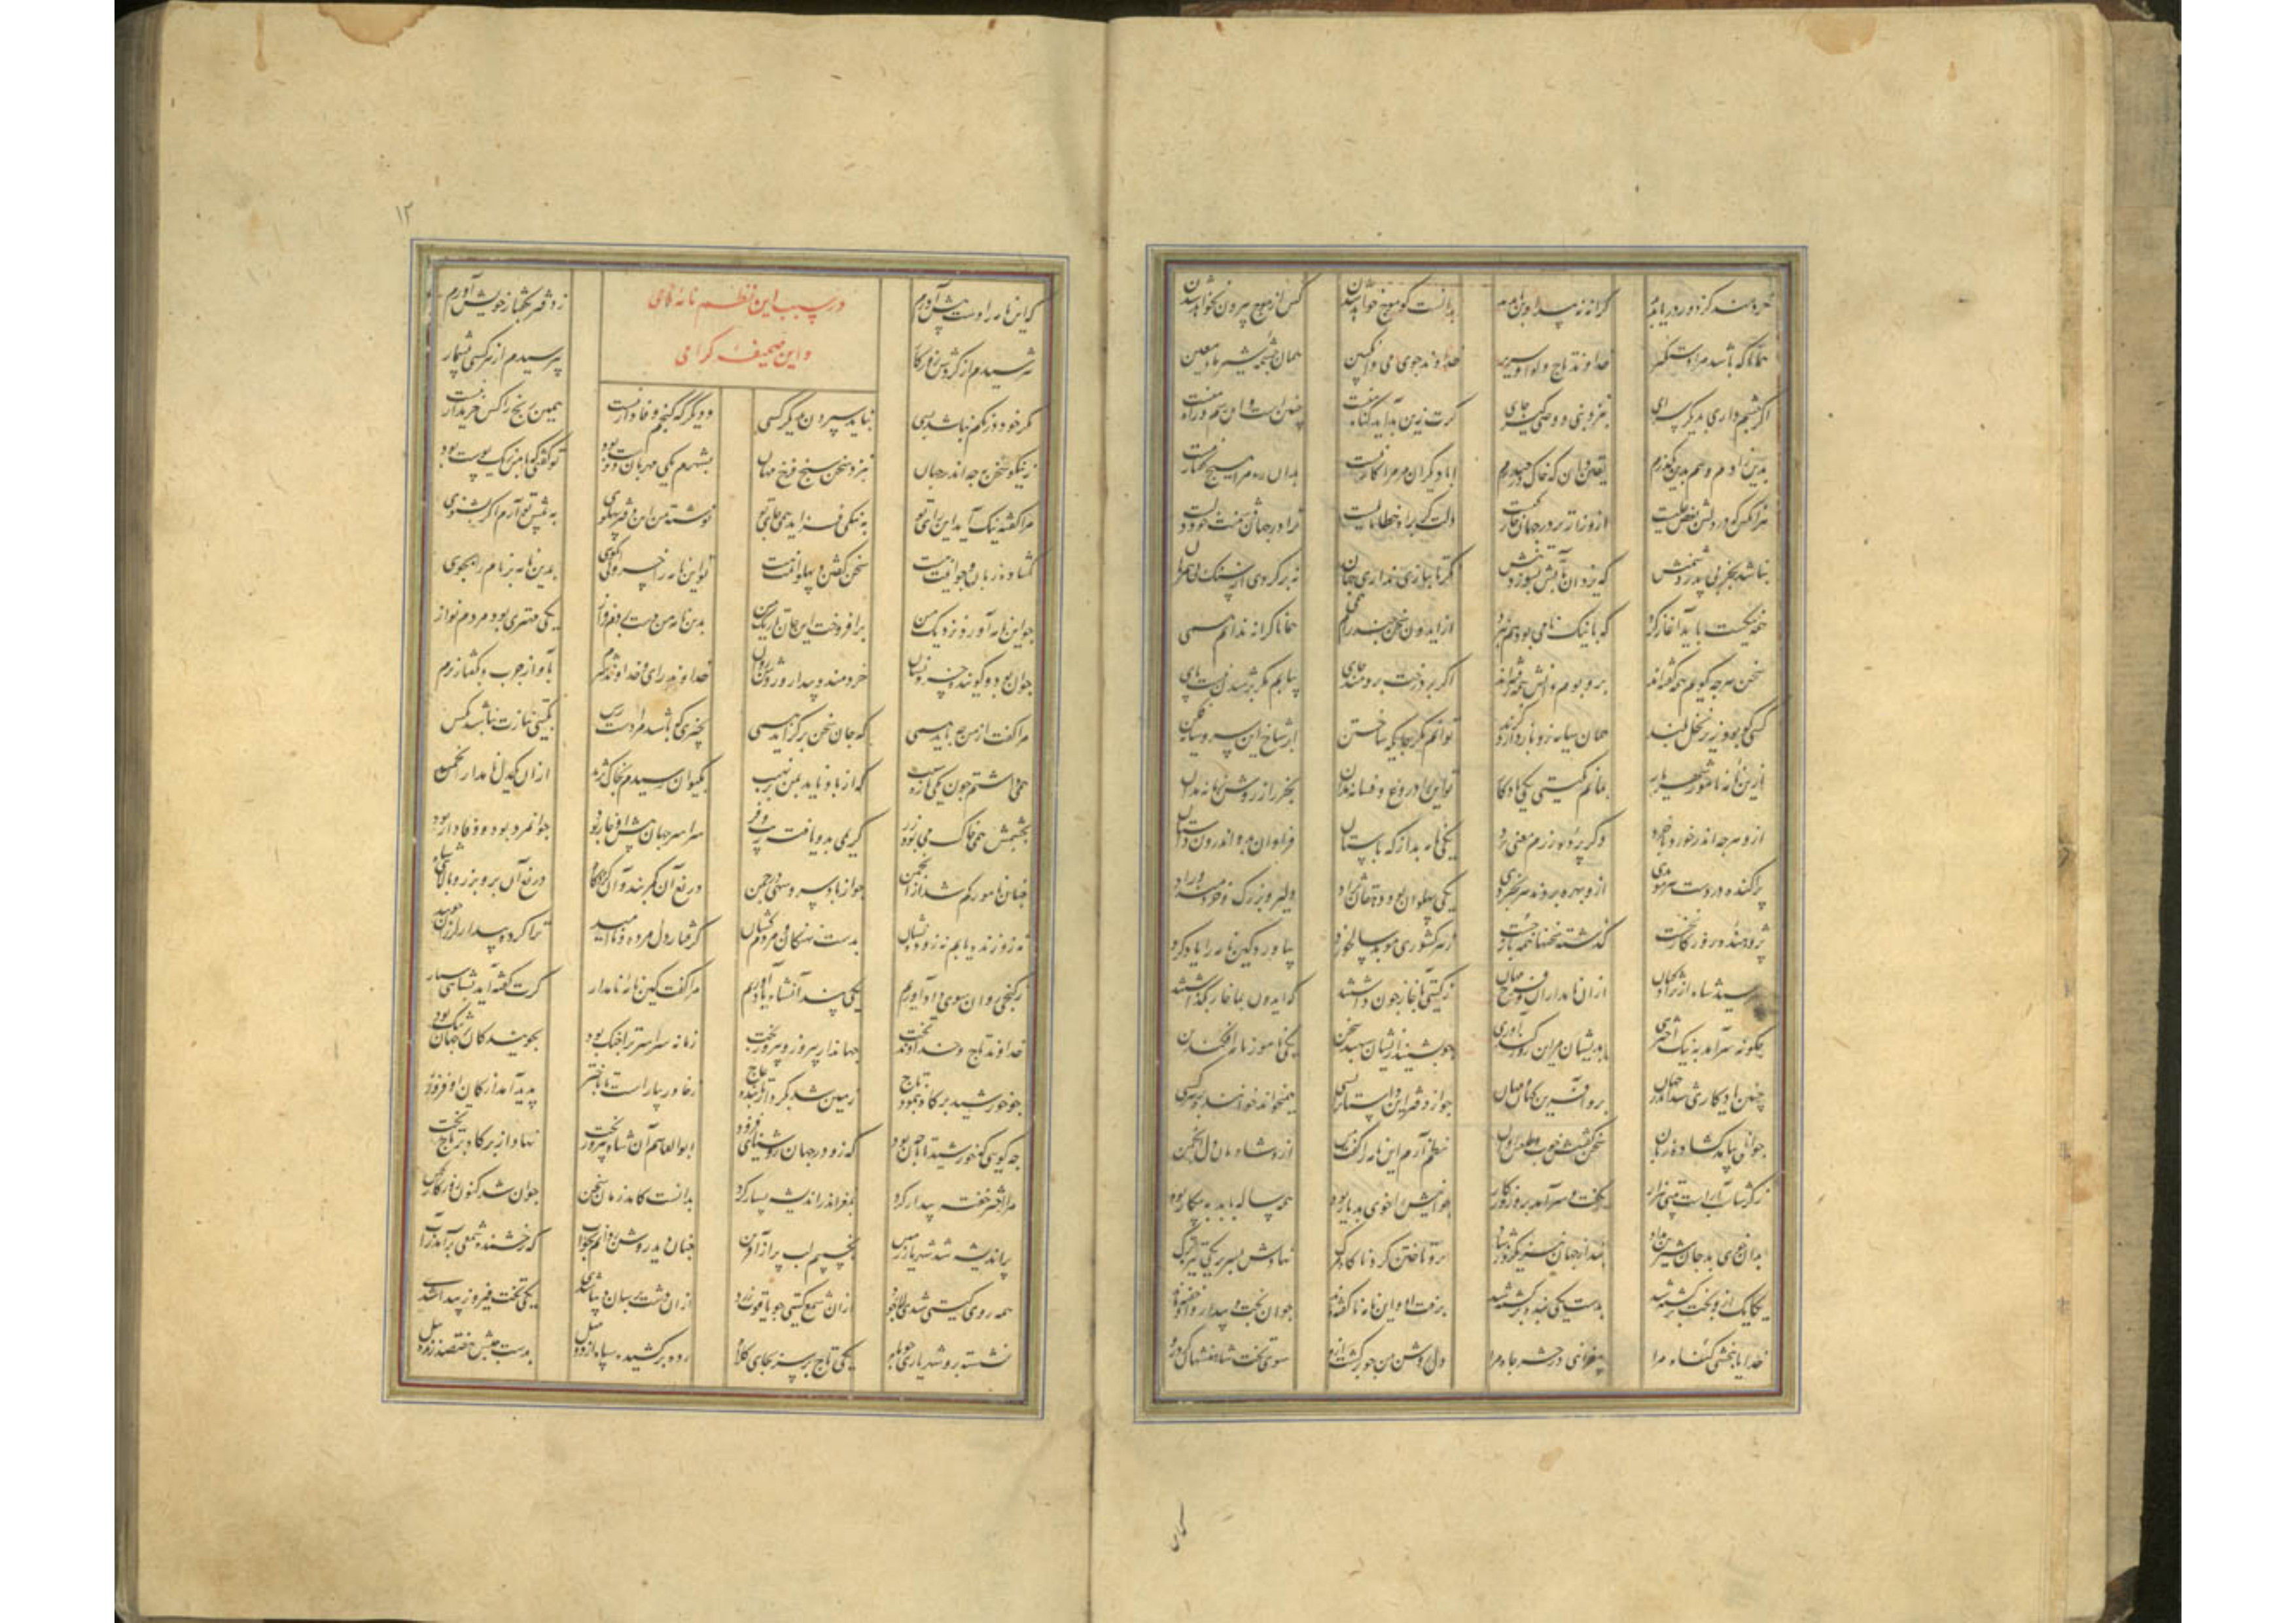 خردمند کز دور دریا بدید
کرانه نه پیدا و بن ناپدید
بدانست کو موج خواهد زدن
کس از موج بیرون نخواهد شدن
همانا که باشد مرا دستگیر
خداوند تاج و لوا و سریر
خداوند جوی می و انگبین
همان چشمه شیر و ماء معین
اگر چشم داری بدیگر سرای
بنزد نبی و وصی گیر جای
گرت زین بد آید گناه منست
چنین است و این رسم و راه منست
بدین زادم و هم بدین بگذرم
یقین دان که خاک پی حیدرم
ابا دیگران مر مرا کار نیست
بدان در مرا هیچ گفتار نیست
هر آنکس که در دلش بغض علیست
ازو زارتر در جهان زار کیست
دلت گر براه خطا مایلست
ترا در جهان دشمن خود دلست
نباشد بجز بی پدر دشمنش
که یزدان بآتش بسوزد تنش
نگر تا ببازی نداری جهان
نه برگردی از نیک پی
همه نیکیت باید آغاز کرد
که با نیک نامی بود هم نبرد
از ایدون سخن چند رانم همی
همانا کرانه ندانم همی
سخن هرچه گویم همه گفته اند
بر و بوم دانش همه رفته اند
اگر بر درخت برومند جای
نیابم که بر شدن نیست پای
کسی کو بود زیر نخل بلند
همان سایه زو باز دارد گزند
توانم مگر جایگه ساختن
بر شاخ آن سرو سایه فکن
ازین نامه نامور شهریار
بمانم بگیتی یکی یادگار
تو این را دروغ و فسانه مدان
ازو هرچه اندر خورد با خرد
دگر بر ره رمز معنی برد
یکی نامه بد از گه باستان
فراوان بدو اندرون داستان
پراکنده در دست هر موبدی
ازو بهره برده هر بخردی
یکی پهلوان بود دهقان نژاد
دلیر و بزرگ و خردمند و راد
پژوهنده روزگار نخست
گذشته سخنها همه باز جست
ز هر کشوری موبدی سالخورد
بیاورد کین نامه را یاد کرد
بپرسید شاه از نژاد کیان
از آن نامداران و فرخ مهان
که گیتی بآغاز چون داشتند
که ایدون بما خوار بگذاشتند
چگونه سرآمد به نیک اختری
بر ایشان بر آن روز کندآوری
چو بشنید ازیشان سپهبد سخن
یکی نامور نامه افکند بن
چنین یادگاری شد اندر جهان
برو آفرین کهان و مهان
چو از دفتر این داستانها بسی
همیخواند خواننده بر هر کسی
جوانی بیامد گشاده زبان
سخن گفتنش خوب و طبعش روان
بنظم آرم این نامه را گفت من
ازو شادمان شد دل انجمن
ز گشتاسب و ارجاسب بیتی هزار
بگفت و سرآمد برو روزگار
جوانیش را خوی بد یار بود
همه ساله با بد به پیکار بود
بدان خوی بد جان شیرین بداد
نبد از جهان نیز یکروز شاد
برو تاختن کرد ناگاه مرگ
نهادش بسر بر یکی تیره ترگ
یکایک ازو بخت برگشته شد
بدست یکی بنده بر کشته شد
برفت او و این نامه ناگفته ماند
جوان بخت بیدار او خفته ماند
خدایا ببخشی گناه مرا
بیفزائی در حشر جاه مرا
دل روشن من چو برگشت ازو
سوی تخت شاهنشهان کرد رو
۱۲
در سبب این نظم نامه نامی
و این صحیفه گرامی
که این نامه را دست پیش آورم
ز دفتر بگفتار خویش آورم
بترسیدم از گردش روزگار
بپرسیدم از هر کسی بیشمار
مگر خود درنگم نباشد بسی
بباید سپردن بدیگر کسی
و دیگر که گنجم وفادار نیست
همین رنج را کس خریدار نیست
ز نیکو سخن به چه اندر جهان
بنزد سخن سنج فرخ مهان
بشهرم یکی مهربان دوست بود
تو گفتی که با من بیک پوست بود
مرا گفت نیک آمد این رای تو
به نیکی خرامد همی پای تو
نوشته من این دفتر پهلوی
به پیش تو آرم اگر بشنوی
گشاده زبان و جوانیت هست
سخن گفتن پهلوانیت هست
تو این نامه را خسروی بازگوی
بدین نامه بر نام را بجوی
چو این نامه آورد نزدیک من
برافروخت این جان تاریک من
بدین نامه من دست بردم فراز
یکی مهتری بود مردم نواز
جوان بود و گوینده
خردمند و بیدار و روشن روان
خداوند رای و خداوند شرم
بآواز خوب و بگفتار نرم
مرا گفت از من چه باید همی
که جان سخن برگراید همی
بچیزی که باشد مرا دست رس
بگیتی نیازت نباشد بکس
همی داشتم چون یکی تازه سیب
که از باد ناید بمن نهیب
بکیوان رسیدم ز خاک نژند
از آن نیکدل نامدار انجمن
بچشمش همان خاک و هم سیم و زر
کریمی بدو یافته زیب و فر
سراسر جهان پیش او خوار بود
جوانمرد بود و وفادار بود
چنان نامور گم شد از انجمن
چو از باد سرو سهی در چمن
دریغ آن کمربند و آن گردگاه
دریغ آن بر و برز و بالای شاه
نه زو زنده یابم نه زو نشان
بدست نهنگان مردم کشان
گرفتار دل مرده و ناامید
ز کجی روان سوی داد آوریم
یکی پند آن شاه یاد آوریم
مرا گفت کین نامه نامدار
گرت گفته آید بشاهی سپار
خداوند تاج و خداوند تخت
جهاندار پیروز و پیروزبخت
زمانه سراسر پر از جنگ بود
بجویندگان بر جهان تنگ بود
چو خورشید بر گاه بنمود تاج
زمین شد بکردار تابنده عاج
ز خاور بیاراست تا باختر
پدید آمد از کان او فر زر
چه گوئی که خورشید تابان که بود
که زو در جهان روشنائی فزود
ابوالقاسم آن شاه پیروز بخت
نهاد از بر گاه بر تاج تخت
مرا اختر خفته بیدار کرد
بمغز اندر اندیشه بسیار کرد
بدانست کامد زمان سخن
پراندیشه شد شهریار زمین
بخسپیدم لب پر از آفرین
چنان دید روشن روانم بخواب
که رخشنده شمعی برآمد ز آب
همه روی گیتی شدی لاژورد
از آن شمع گشتی چو یاقوت زرد
یکی تخت فیروزه پیدا شدی
نشسته برو شهریاری چو ماه
یکی تاج بر سر بجای کلاه
رده برکشیده سپاه از دو میل
بدست چپش هفتصد زنده پیل